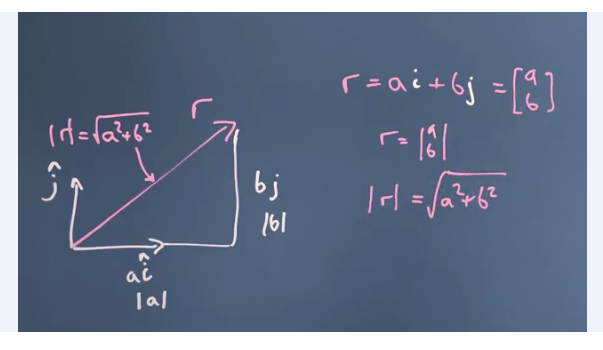 |r| = √a²+b²
r
ĵ
bj
|b|
aî
|a|
r = ai + bj = [a b]
r = |a b|
|r| = √a²+b²